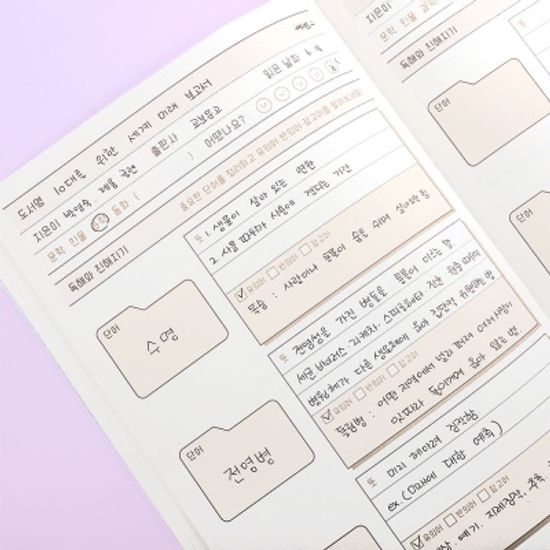 예시
도서명 10대를 위한 세계 미래 보고서 읽은 날짜
지은이 박영숙, 제롬 글렌 출판사 교보문고
문학 인물 과학 동화 ( ) 어땠나요?
독해와 친해지기 중요한 단어를 정리하고 유의어 반의어 참고어를 알아보세요!
단어
수명
뜻 1. 생물이 살아 있는 연한
2. 사물 따위가 사용에 견디는 기간
유의어 반의어 참고어
목숨 : 사람이나 동물이 숨을 쉬며 살아있는 힘
단어
전염병
뜻 전염성을 가진 병들을 통틀어 이르는 말.
세균 바이러스 리케차, 스피로헤타 진균 원충 따위
병원체가 다른 생물체에 옮아 집단적 유행하는 병
유의어 반의어 참고어
돌림병 : 어떤 지역에서 널리 퍼져 여러 사람이
잇따라 돌아가며 옮아 앓는 병.
뜻 미리 헤아려 짐작함
ex. (미래에 대한 예측)
유의어 반의어 참고어
예기, 지레짐작,
지은이
문학 인물 과학
독해와 친해지기
단어
단어